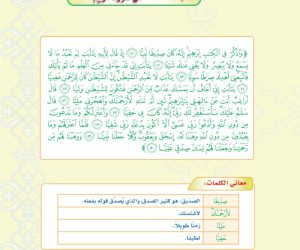 وَاذْكُرْ فِي الْكِتَابِ إِبْرَاهِيمَ إِنَّهُ كَانَ صِدِّيقًا نَّبِيًّا ﴿٤١﴾ إِذْ قَالَ لِأَبِيهِ يَا أَبَتِ لِمَ تَعْبُدُ مَا لَا
يَسْمَعُ وَلَا يُبْصِرُ وَلَا يُغْنِي عَنكَ شَيْئًا ﴿٤٢﴾ يَا أَبَتِ إِنِّي قَدْ جَاءَنِي مِنَ الْعِلْمِ مَا لَمْ يَأْتِكَ
فَاتَّبِعْنِي أَهْدِكَ صِرَاطًا سَوِيًّا ﴿٤٣﴾ يَا أَبَتِ لَا تَعْبُدِ الشَّيْطَانَ إِنَّ الشَّيْطَانَ كَانَ لِلرَّحْمَٰنِ عَصِيًّا
﴿٤٤﴾ يَا أَبَتِ إِنِّي أَخَافُ أَن يَمَسَّكَ عَذَابٌ مِّنَ الرَّحْمَٰنِ فَتَكُونَ لِلشَّيْطَانِ وَلِيًّا ﴿٤٥﴾ قَالَ
أَرَاغِبٌ أَنتَ عَنْ آلِهَتِي يَا إِبْرَاهِيمُ لَئِن لَّمْ تَنتَهِ لَأَرْجُمَنَّكَ وَاهْجُرْنِي مَلِيًّا ﴿٤٦﴾ قَالَ
سَلَامٌ عَلَيْكَ سَأَسْتَغْفِرُ لَكَ رَبِّي إِنَّهُ كَانَ بِي حَفِيًّا ﴿٤٧﴾ وَأَعْتَزِلُكُمْ وَمَا تَدْعُونَ
مِن دُونِ اللَّهِ وَأَدْعُو رَبِّي عَسَىٰ أَلَّا أَكُونَ بِدُعَاءِ رَبِّي شَقِيًّا ﴿٤٨﴾ فَلَمَّا اعْتَزَلَهُمْ وَمَا
يَعْبُدُونَ مِن دُونِ اللَّهِ وَهَبْنَا لَهُ إِسْحَاقَ وَيَعْقُوبَ وَكُلًّا جَعَلْنَا نَبِيًّا ﴿٤٩﴾ وَوَهَبْنَا لَهُم مِّن
رَّحْمَتِنَا وَجَعَلْنَا لَهُمْ لِسَانَ صِدْقٍ عَلِيًّا ﴿٥٠﴾
معاني الكلمات:
صِدِّيقًا الصديق: هو كثير الصدق، والذي يُصدّق قوله بفعله.
لَأَرْجُمَنَّكَ لأشتمنك.
مَلِيًّا زمنًا طويلاً.
حَفِيًّا لطيفًا.